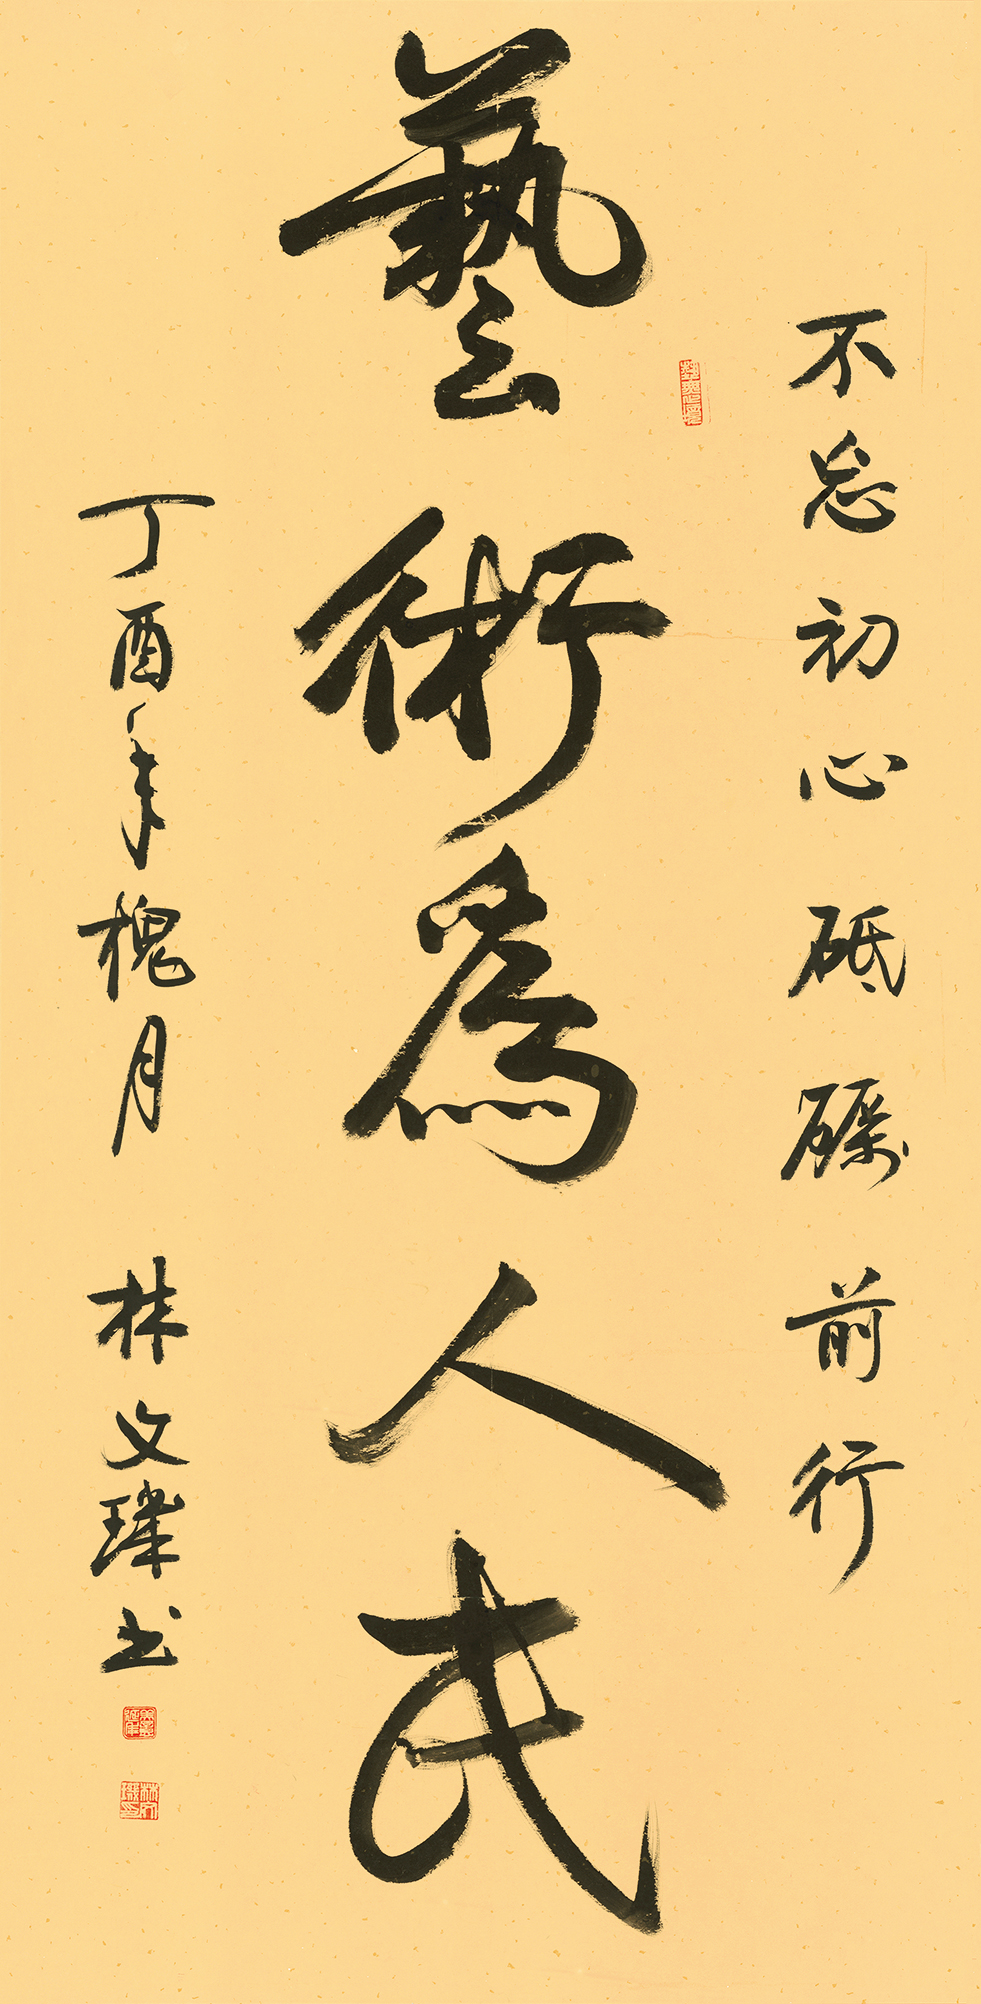 不忘初心砥礪前行
藝術為人民
丁酉年槐月
林文璞书